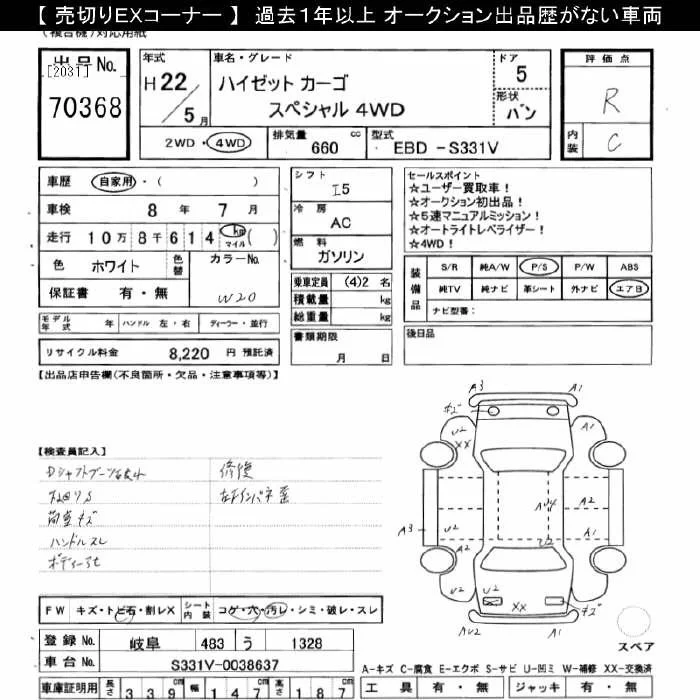 【 売切りEXコーナー 】 過去1年以上 オークション出品歴がない車両
(複合機)対応用紙
出品No.
[2031]
70368
年式
H22/5月
車名・グレード
ハイゼット カーゴ
スペシャル 4WD
ドア
5
形状
バン
評価点
R
内装
C
2WD・4WD
排気量
660 cc
型式
EBD -S331V
車歴 自家用・( )
車検 8 年 7 月
走行 10万 8千 614 km マイル ( )
色 ホワイト
色替
カラーNo.
W20
保証書 有・無
シフト
I5
冷房
AC
燃料
ガソリン
乗車定員 (4)2 名
積載量 kg
総重量 kg
書類期限
月 日
セールスポイント
☆ユーザー買取車!
☆オークション初出品!
☆5速マニュアルミッション!
☆オートライトレベライザー!
☆4WD!
装備品
S/R 純A/W P/S P/W ABS
純TV 純ナビ 革シート 外ナビ エアB
ナビ型番:
後日品
モデル年式 年 ハンドル 左・右 ディーラー・並行
リサイクル料金 8,220 円 預託済
【出品店申告欄(不良箇所・欠品・注意事項等)】
【検査員記入】
修復
荷室キズ
ハンドルスレ
A3
A1
キズ
U2
XX
A1
A1
A2
A3
U2
U2
A1
A2
U2
U2
XX
キズ
AU2
A1
スペア
FW キズ・トビ石・割レX
シート内装 コゲ・穴・汚レ・シミ・破レ・スレ
登録No. 岐阜 483 う 1328
車台No. S331V-0038637
A-キズ C-腐食 E-エクボ S-サビ U-凹ミ W-補修 XX-交換済
車庫証明用 長さ 339cm 幅 147cm 高さ 187cm
工具 有・無 ジャッキ 有・無